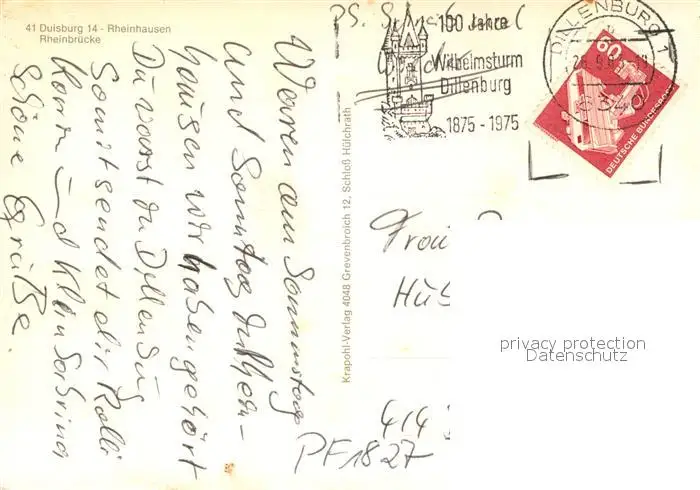 41 Duisburg 14 - Rheinhausen
Rheinbrücke
Waren am Sonnastag
und Sonntag in Rhein-
hausen wir haben gehört
Du warst in Dillenburg
Somit sendet dir Rolli
Karin und Klein Sabrina
Schöne Grüße.
Krapohl-Verlag 4048 Grevenbroich 12, Schloß Hülchrath
PS.
100 Jahre
Wilhelmsturm
Dillenburg
1875 - 1975
DILLENBURG 1
6340
60
DEUTSCHE BUNDESPOST
Frau
Hüt
414
PF1827
privacy protection
Datenschutz